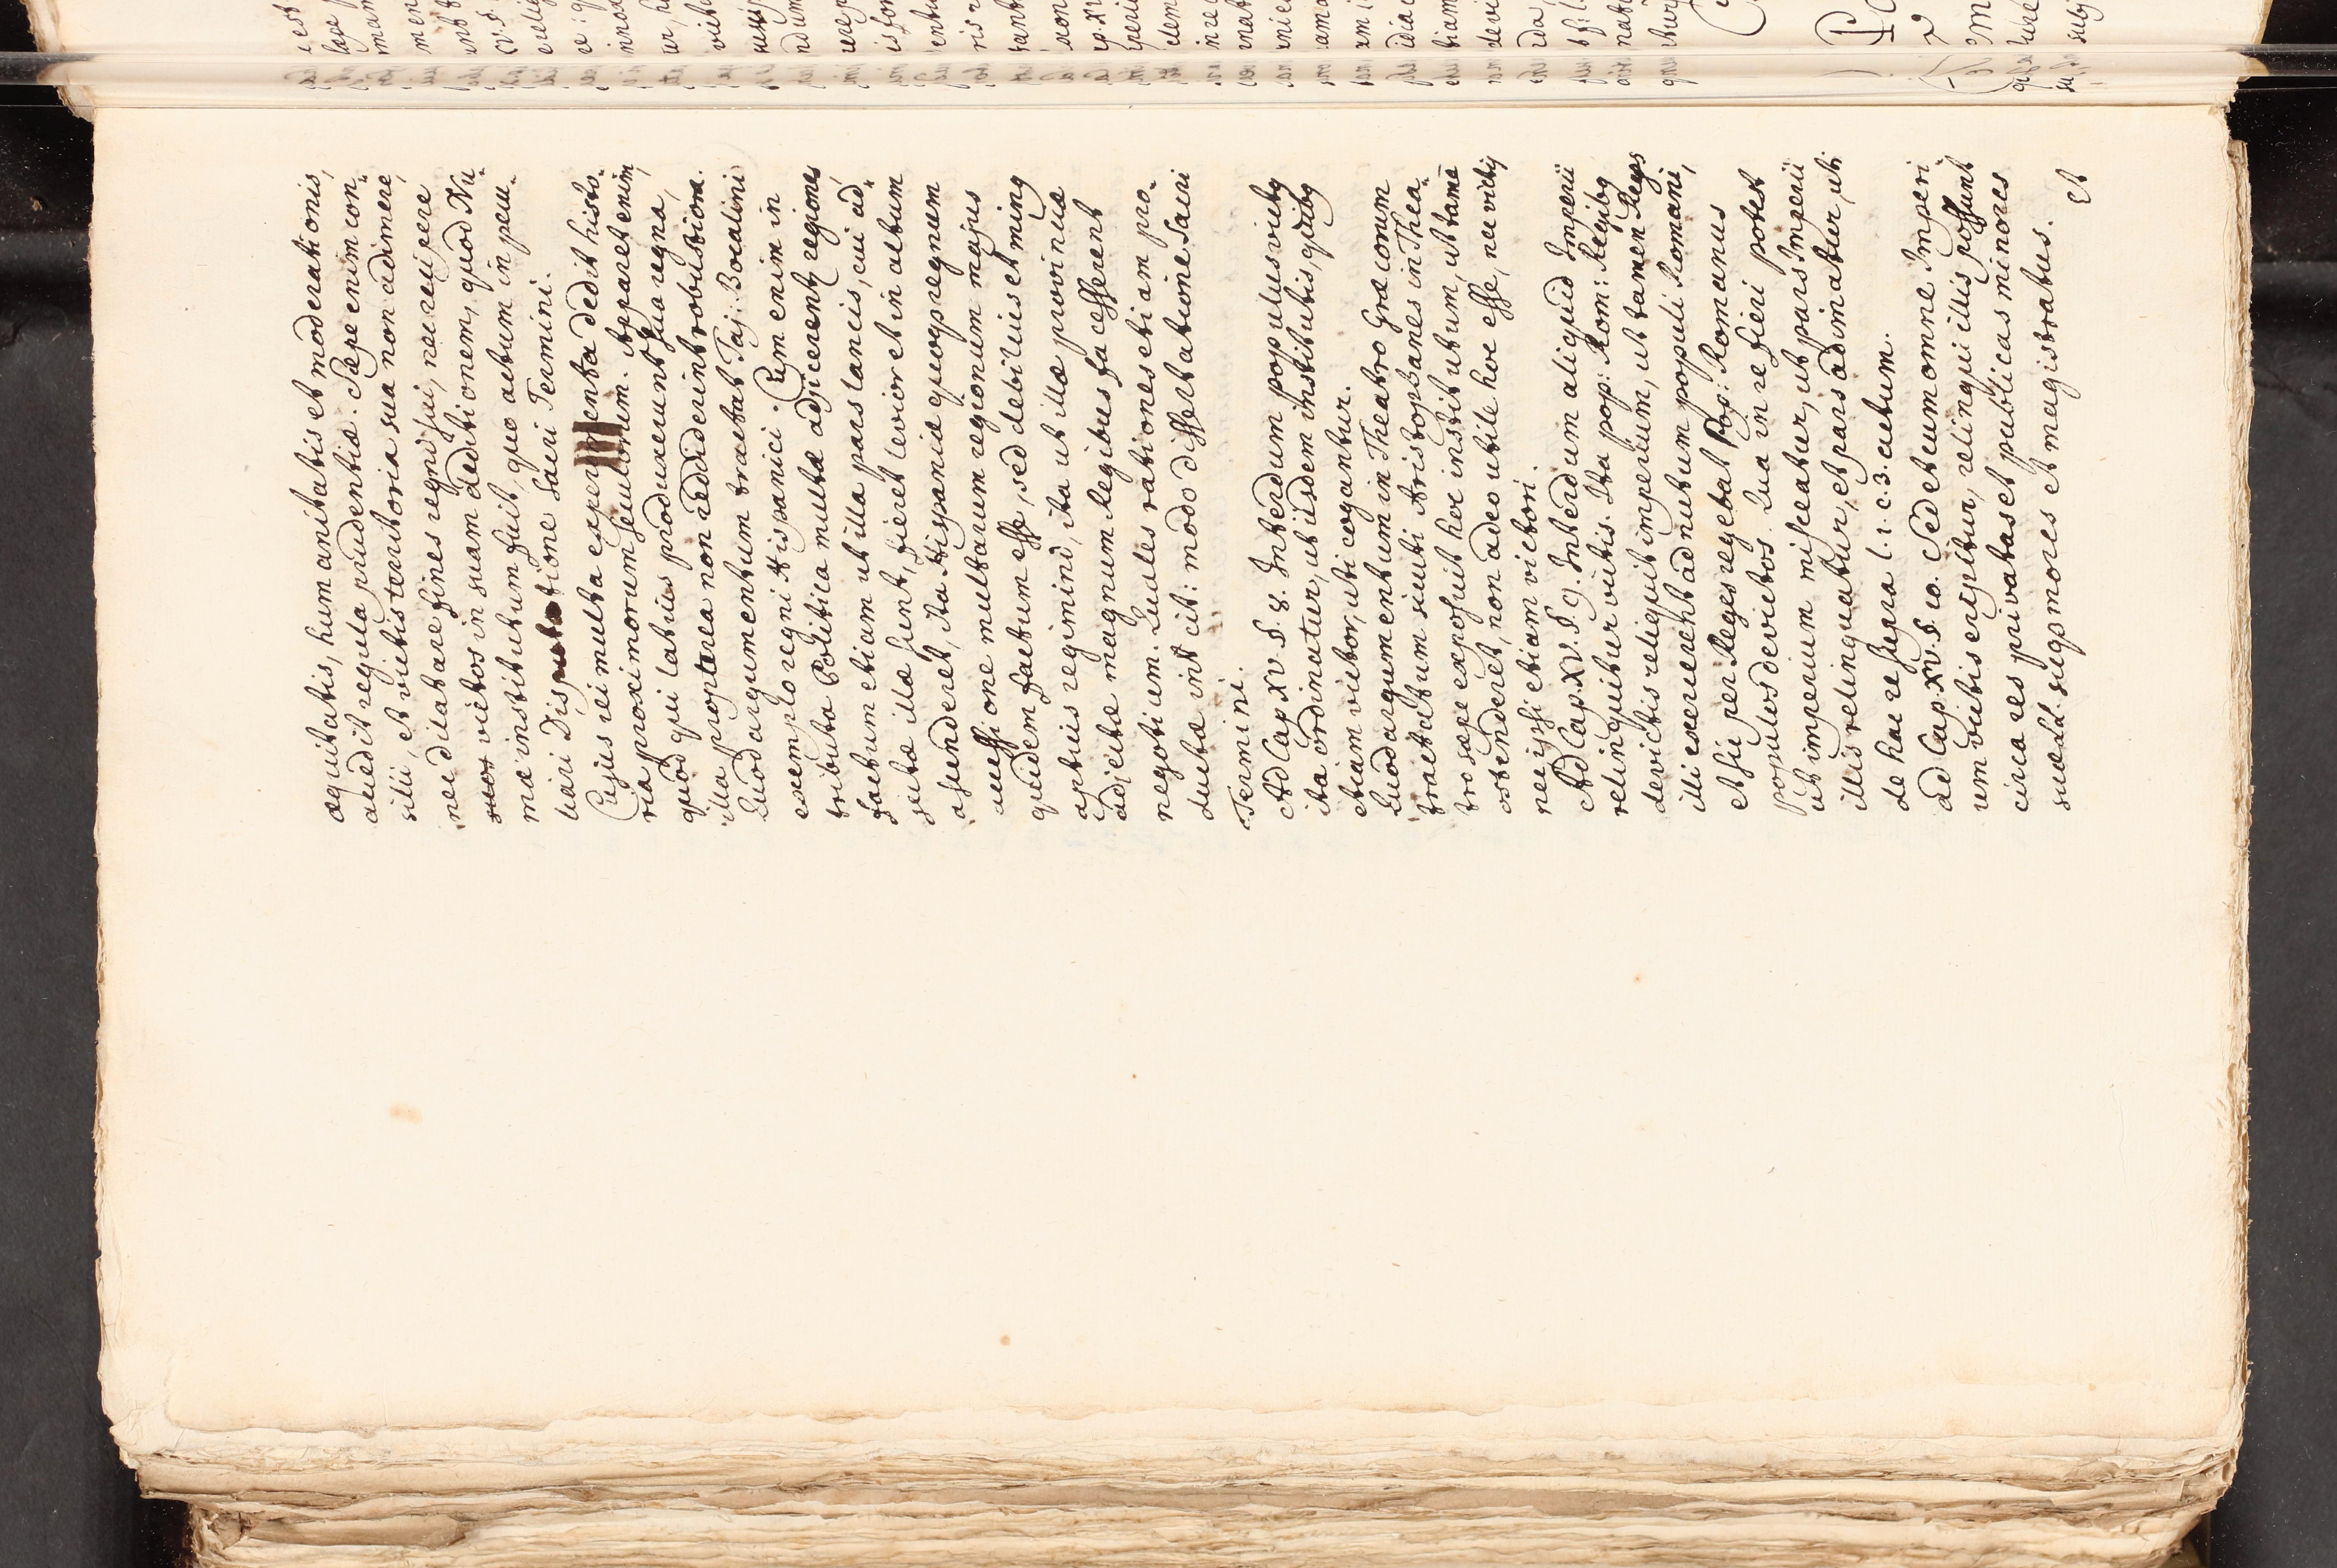 æquitatis, humanitatis et moderationis,
accedit regula prudentiæ. Sæpe enim con-
silii, et victis territoria sua non adimere,
nec dilatare fines regni sui, nec recipere
suos victos in suam deditionem, quod Nu-
mæ institutum fuit, quo actum in pecu-
liari Disputatione sacri Termini.
Cujus rei multa experimenta dedit histo-
ria proximorum seculorum. Apparet enim,
quòd qui latius produxerunt sua regna,
illa propterea non reddiderint robustiora.
Quod argumentum tractat Taj: Bocalini
exemplo regni Hispanici. Cum enim in
tributa Politica multæ adjicerentur regiones
factum etiam ut illa pars lancis, cui ad-
jectæ illæ sunt, fieret levior et in altum
ascenderet, ita Hispaniæ quoque regnum
accessione multarum regionum majus
quidem factum esse, sed debilius et minus
aptius regimini, ita ut illæ provinciæ
adjectæ magnum Regibus facesserent
negotium. Quales rationes etiam pro-
ductæ in cit: modo dissertatione Sacri
Termini.
Ad Cap. XV. §. 8. Interdum populus victus
ita ordinatur, ut iisdem institutis, quibus
etiam victor, uti cogantur.
Quod argumentum in Theatro Græcorum
tractatum sicuti Aristophanes in Thea-
tro sæpe exposuit hoc institutum, ut tamē
ostenderet, non adeo utile hoc esse, nec victis
nec ipsi etiam victori.
Ad Cap. XV. §. 9. Interdum aliquid Imperii
relinquitur victis. Ita pop: Rom: Regibus
devictis reliquit imperium, ut tamen Reges
illi exercerent ad nutum populi Romani,
et sic per Reges regebat Pop: Romanus
populos devictos. Qua in re fieri potest
ut imperium misceatur, ut pars Imperii
illis relinquatur, et pars adimatur, uti
de hac re supra l. 1. c. 3. actum.
ad Cap. XV. §. 10. Sed et cum omne Imperi-
um victis eripitur, relinqui illis possunt
circa res privatas et publicas minores
suæ LL. suique mores et magistratus.
et